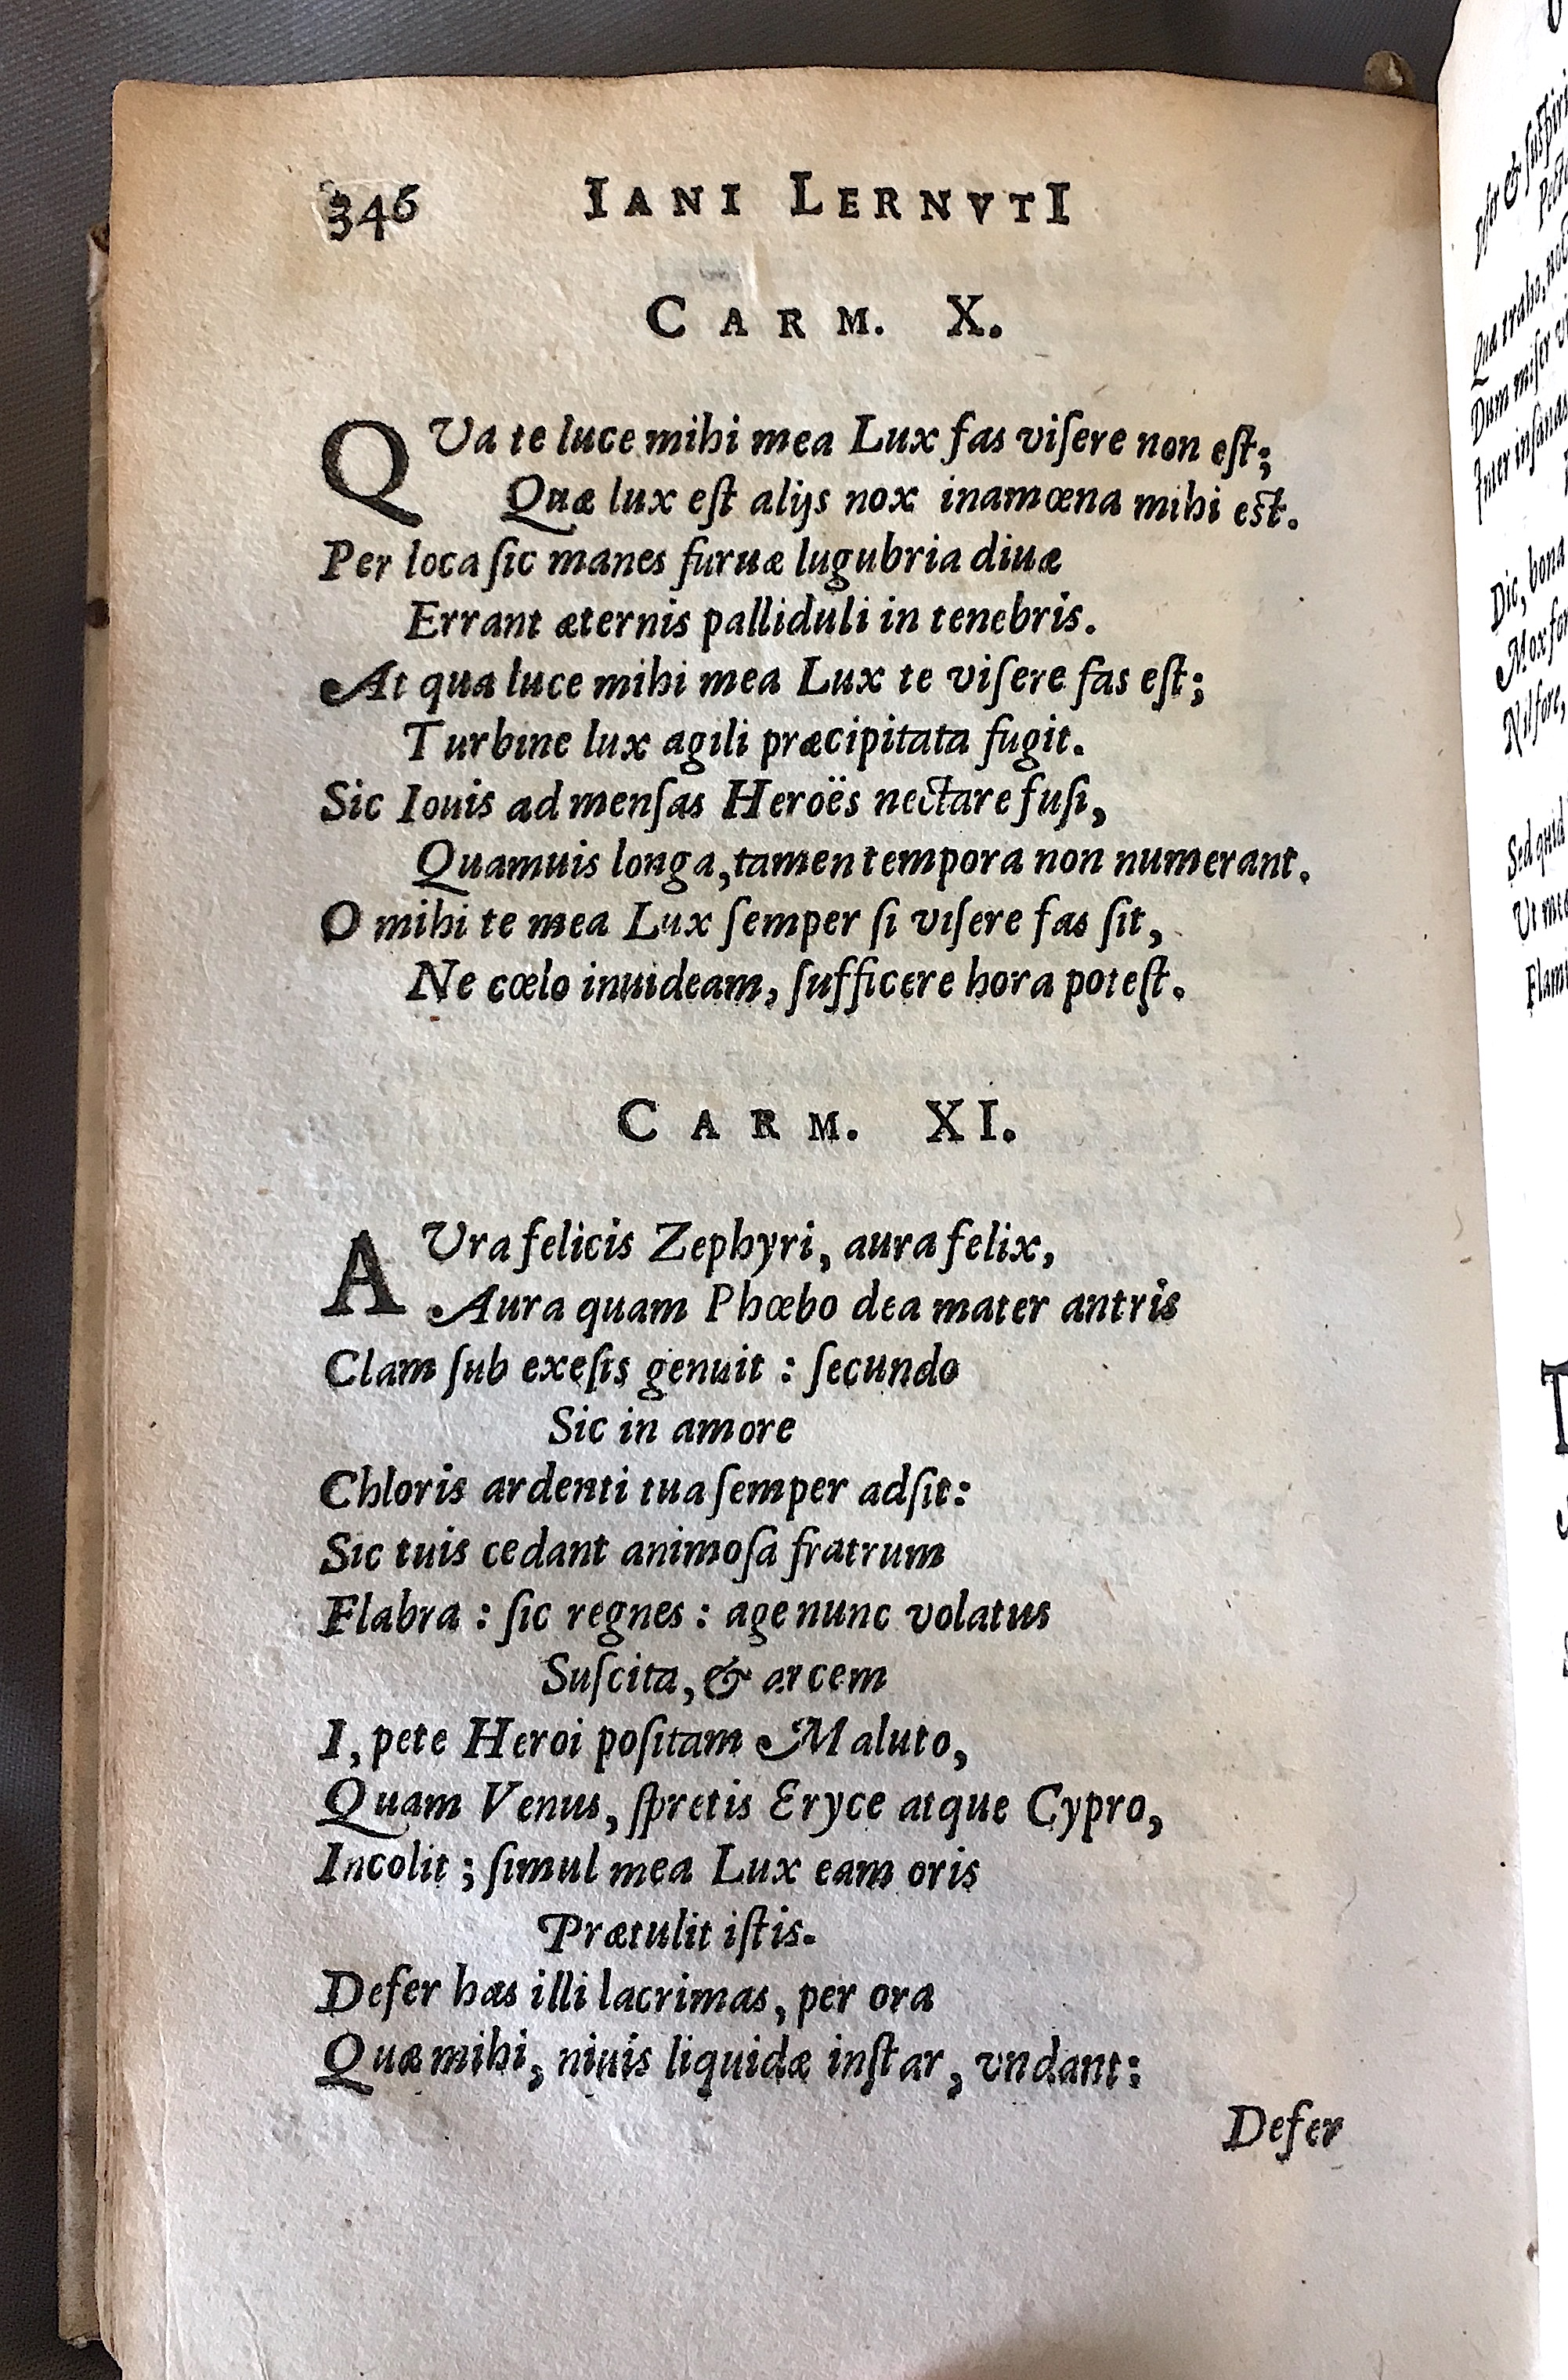 346 IANI LERNVTI
CARM. X.
QVa te luce mihi mea Lux fas viſere non eſt;
Quæ lux eſt alijs nox inamœna mihi eſt.
Per loca ſic manes furuæ lugubria diuæ
Errant æternis palliduli in tenebris.
At qua luce mihi mea Lux te viſere fas eſt;
Turbine lux agili præcipitata fugit.
Sic Iouis ad menſas Heroës nectare fuſi,
Quamuis longa, tamen tempora non numerant.
O mihi te mea Lux ſemper ſi viſere fas ſit,
Ne cœlo inuideam, ſufficere hora poteſt.
CARM. XI.
AVra felicis Zephyri, aura felix,
Aura quam Phœbo dea mater antris
Clam ſub exeſis genuit : ſecundo
Sic in amore
Chloris ardenti tua ſemper adſit:
Sic tuis cedant animoſa fratrum
Flabra : ſic regnes : age nunc volatus
Suſcita, & arcem
I, pete Heroi poſitam Maluto,
Quam Venus, ſpretis Eryce atque Cypro,
Incolit ; ſimul mea Lux eam oris
Prætulit iſtis.
Defer has illi lacrimas, per ora
Quæ mihi, niuis liquidæ inſtar, vndant:
Defer
Quæ traho,
Dum miſer
Dic, bona
Nil fore,
Sed quid